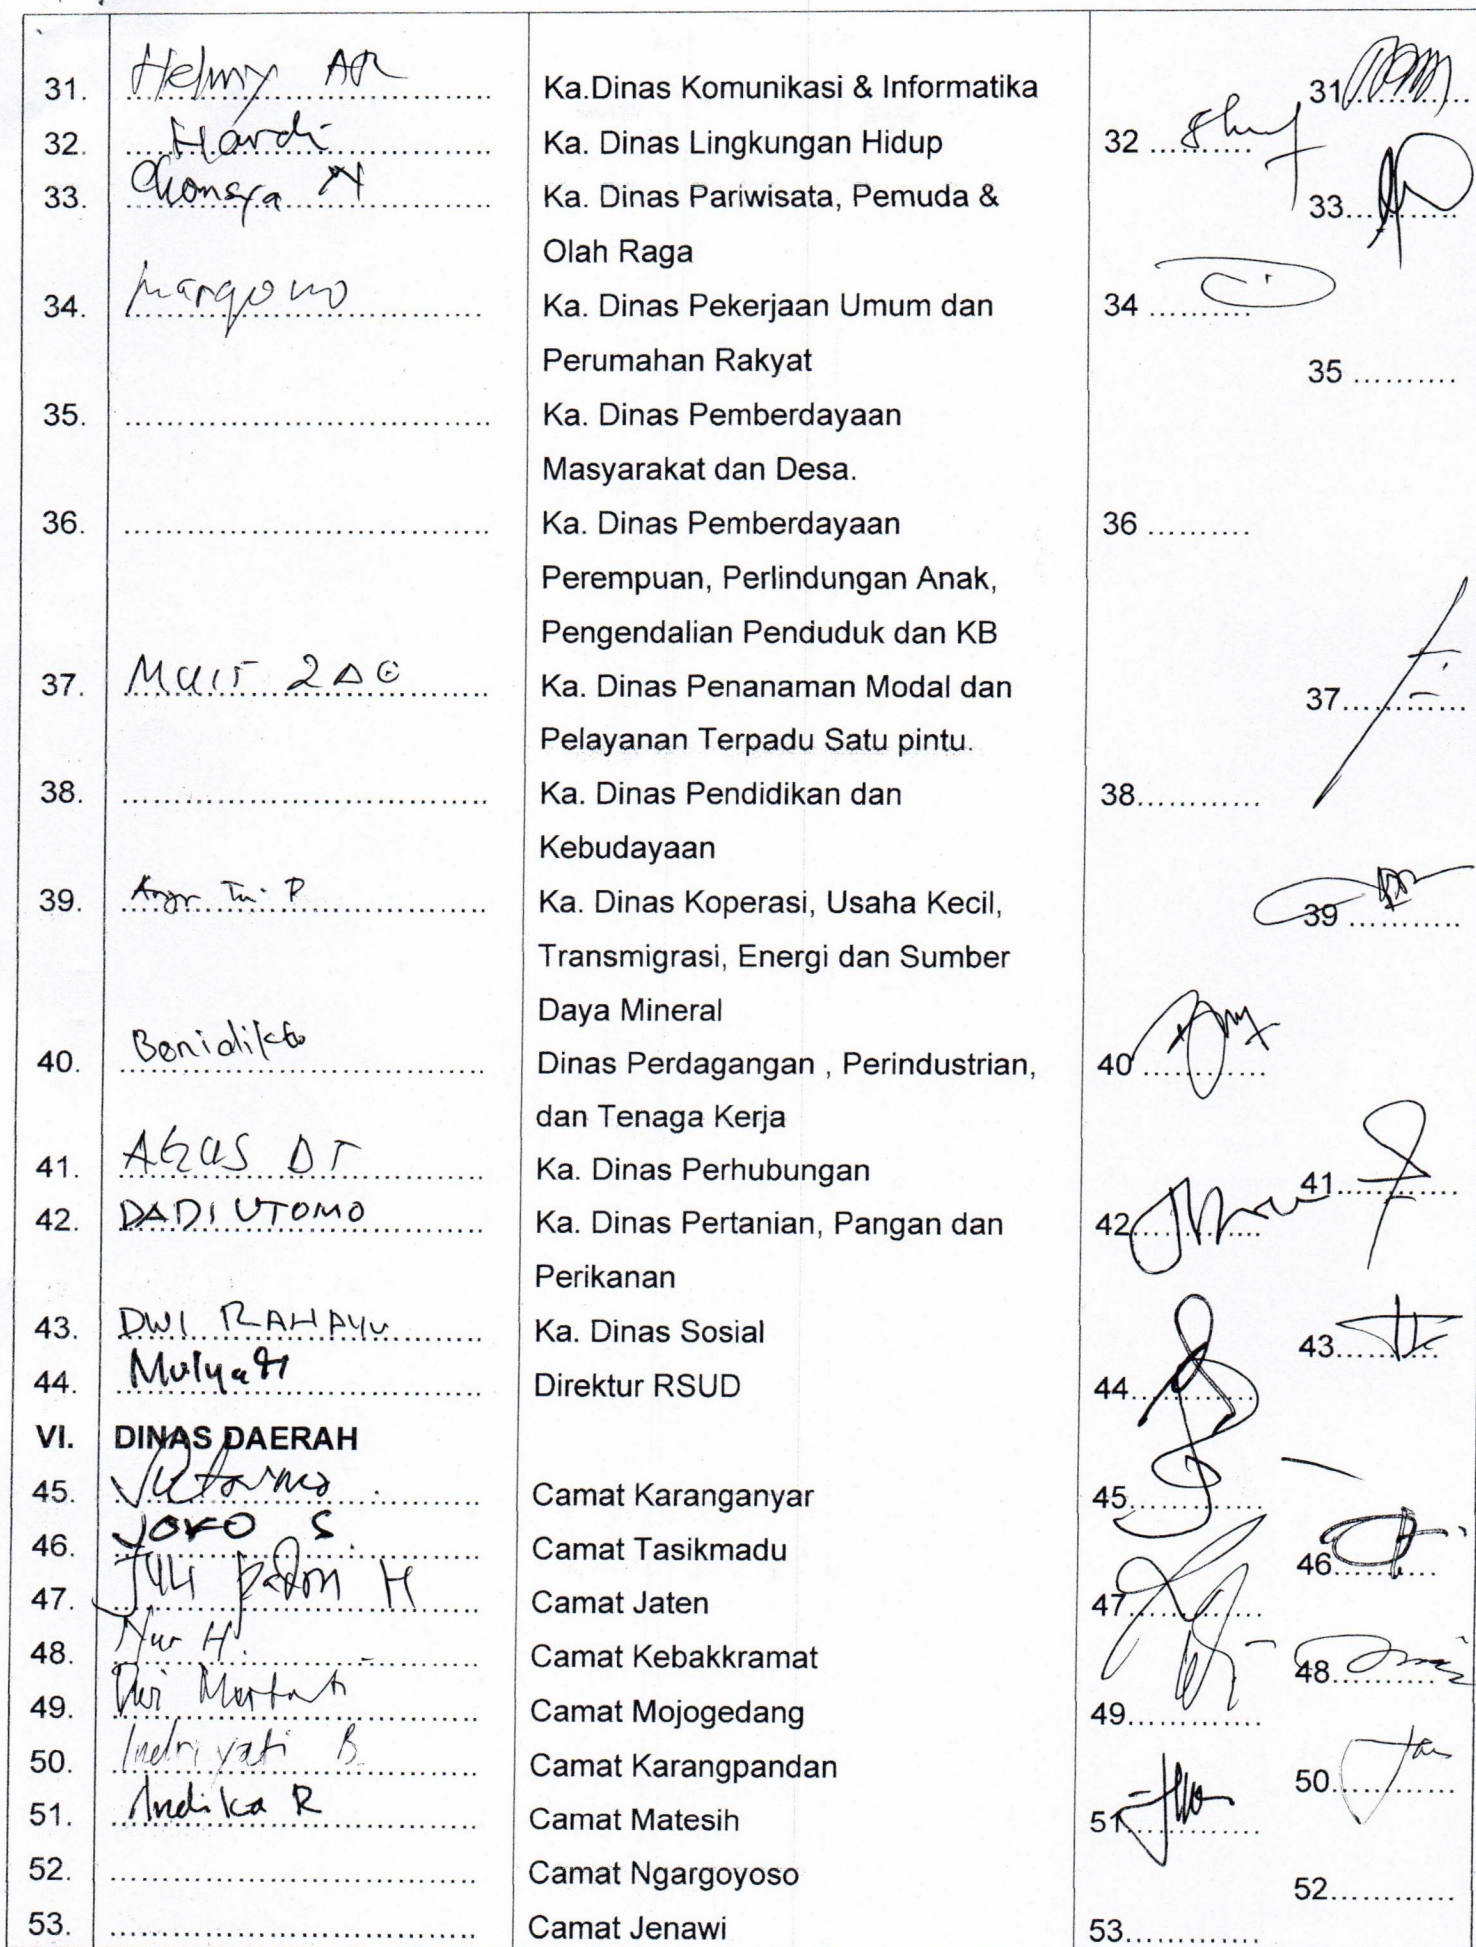 31. Helmy AR Ka.Dinas Komunikasi & Informatika 31..............
32. Hardi Ka. Dinas Lingkungan Hidup 32 ..........
33. Ka. Dinas Pariwisata, Pemuda & 33...........
Olah Raga
34. Margono Ka. Dinas Pekerjaan Umum dan 34 ..........
Perumahan Rakyat
35. .................................. Ka. Dinas Pemberdayaan 35 ..........
Masyarakat dan Desa.
36. .................................. Ka. Dinas Pemberdayaan 36 ..........
Perempuan, Perlindungan Anak,
Pengendalian Penduduk dan KB
37. Ka. Dinas Penanaman Modal dan 37..............
Pelayanan Terpadu Satu pintu.
38. .................................. Ka. Dinas Pendidikan dan 38............
Kebudayaan
39. Ka. Dinas Koperasi, Usaha Kecil, 39 ...........
Transmigrasi, Energi dan Sumber
Daya Mineral
40. Benidikto Dinas Perdagangan , Perindustrian, 40 ............
dan Tenaga Kerja
41. AGUS DT Ka. Dinas Perhubungan 41............
42. DADI UTOMO Ka. Dinas Pertanian, Pangan dan 42.............
Perikanan
43. DWI RAHAYU Ka. Dinas Sosial 43..........
44. Mulyati Direktur RSUD 44............
VI. DINAS DAERAH
45. Camat Karanganyar 45.............
46. JOKO S. Camat Tasikmadu 46..........
47. H Camat Jaten 47.............
48. Nur H. Camat Kebakkramat 48...........
49. Dwi Camat Mojogedang 49.............
50. Indriyati B. Camat Karangpandan 50............
51. Andika R Camat Matesih 51.............
52. .................................. Camat Ngargoyoso 52............
53. .................................. Camat Jenawi 53............